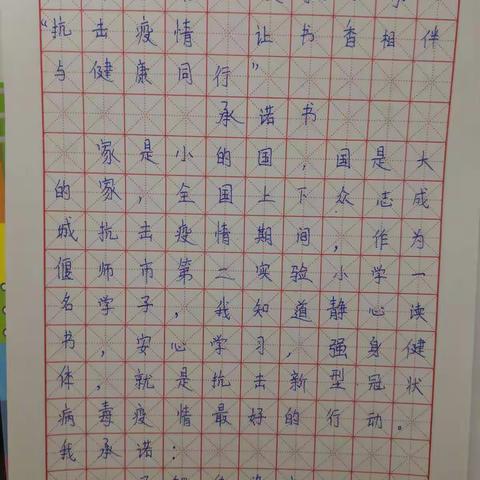 “抗击疫情 让书香相伴
与健康同行”
承诺书
家是小的国，国是大
的家，全国上下众志成
城抗击疫情期间，作为
偃师市第二实验小学一
名学子，我知道静心读
书，安心学习，强身健
体，就是抗击新型冠状
病毒疫情最好的行动。
我承诺：